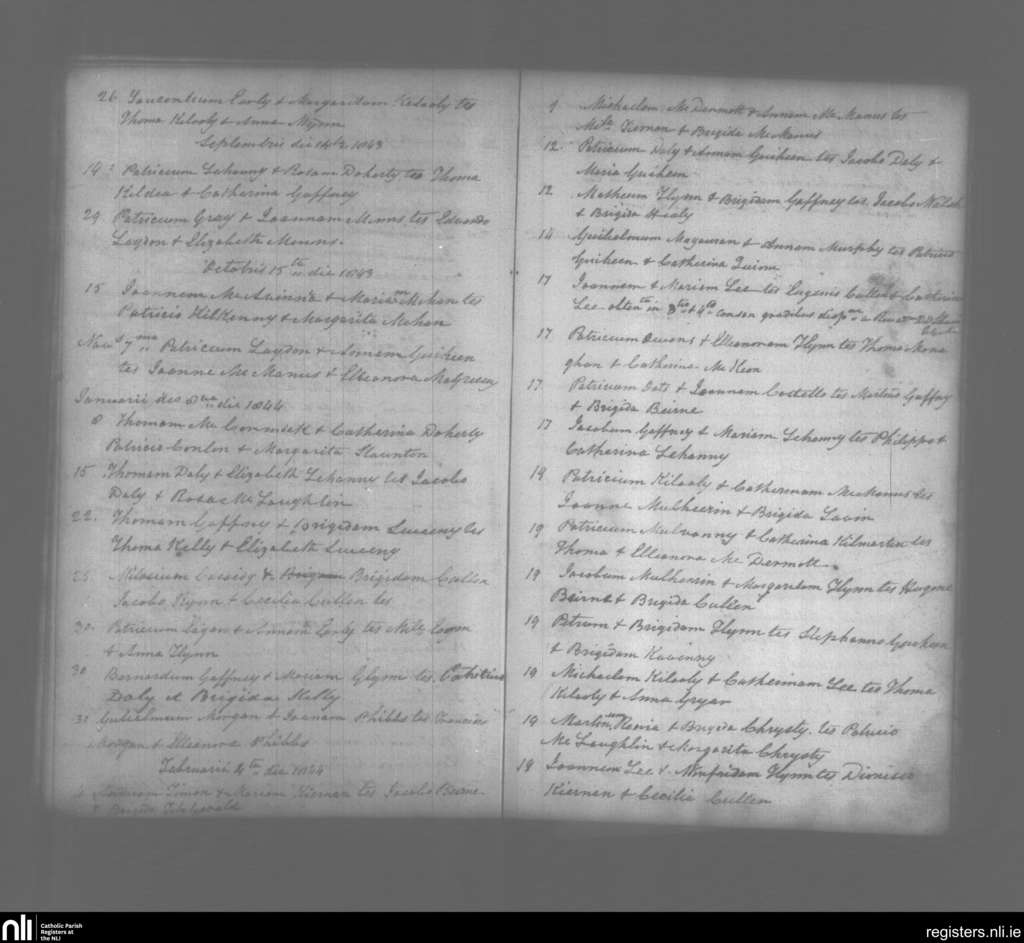 26 Laurentium Early & Margaritam Kilooly tes
Thoma Kilooly & Anna Flynn
Septembris die 14 1843
14 Patricium Lehenny & Rosam Doherty tes Thoma
Kildea & Catherina Gaffney
29 Patricium Gray & Joannam Mimns tes Eduardo
Laydon & Elizabeth Mimns.
Octobris 15th die 1843
15 Joannem Mc & Mariam Mahon tes
Patricio Kilkenny & Margarita Mahon
7 Patricium Laydon & Annam Guiheen
tes Joanne Mc Manus & Elleanora
Januarii die 1844
8 Thomam Mc Cormick & Catherina Doherty
Patricio Conlon & Margarita Staunton
15 Thomam Daly & Elizabeth Lehanny tes Jacobo
Daly & Rosa Mc Laughlin
22. Thomam Gaffney & Brigidam Sweeny tes
Thoma Kelly & Elizabeth Sweeny
25 Cassidy & Brigidam Cullen
Jacobo Flynn & Cecilia Cullen tes
30. Patricium Ligan & Annam Early tes
& Anna Flynn
30 Bernardum Gaffney & Mariam Glynn tes. Patritius
Daly et Brigida Kelly
31 Gulielmum Morgan & Joanam Phibbs tes
Morgan & Elleanora Phibbs
Februarii 4th die 1844
& Mariam Kiernan tes Jacobo Beirne
& Brigida
9 Michaelem Mc Dermott & Annam Mc Manus tes
Kernan & Brigida Mc Manus
12. Patricium Daly & Annam Guiheen tes Jacobo Daly &
Maria Guiheen
12 Matheum Flynn & Brigidam Gaffney tes. Jacobo
& Brigida Healy
14 Guilielmum Magauran & Annam Murphy tes Patricio
Guiheen & Catherina Quinn
17 Joannem & Mariam Lee tes Eugenio Cullen & Catherina
Lee in 3tio & 4to consan gradibus
17 Patricium Owens & Elleanoram Flynn tes Thoma Mona
ghan & Catherina Mc Keon
17 Patricium & Joannam Costello tes Martino Gaffney
& Brigida Beirne
17 Jacobum Gaffney & Mariam Lehanny tes Philippo &
Catherina Lehanny
19 Patricium Kilooly & Catherinam McManus tes
Joanne Mulheerin & Brigida Lavin
19 Patricium Mulvanny & Catherina Kilmartin tes
Thoma & Elleanora Mc Dermott
19 Jacobum Mulherrin & Margaritam Flynn tes
Beirne & Brigida Cullen
19 Petrum & Brigidam Flynn tes Stephano Guiheen
& Brigidam
19 Michaelem Kilooly & Catherinam Lee tes Thoma
Kilooly & Anna
19 & Brigida Chrysty. tes Patricio
Mc Laughlin & Margarita Chrysty
19 Joannem Lee & Flynn tes Dionisio
Kiernan & Cecilia Cullen
nli
Catholic Parish
Registers at
the NLI
registers.nli.ie